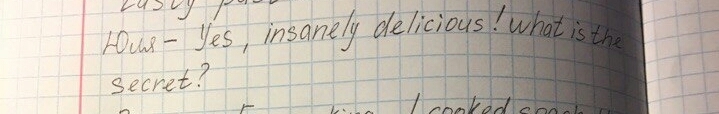 tasty
Юля – Yes, insanely delicious! what is the
secret?
I cooked